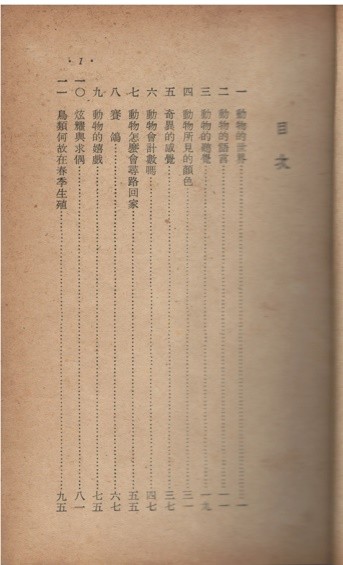 目次
一 動物的世界……一
二 動物的語言……一一
三 動物的聽覺……一九
四 動物所見的顏色……三一
五 奇異的感覺……三七
六 動物會計數嗎……四七
七 動物怎麼會尋路回家……五五
八 賽鴿……六七
九 動物的嬉戲……七五
一〇 炫耀與求偶……八一
一一 鳥類何故在春季生殖……九五
·1·